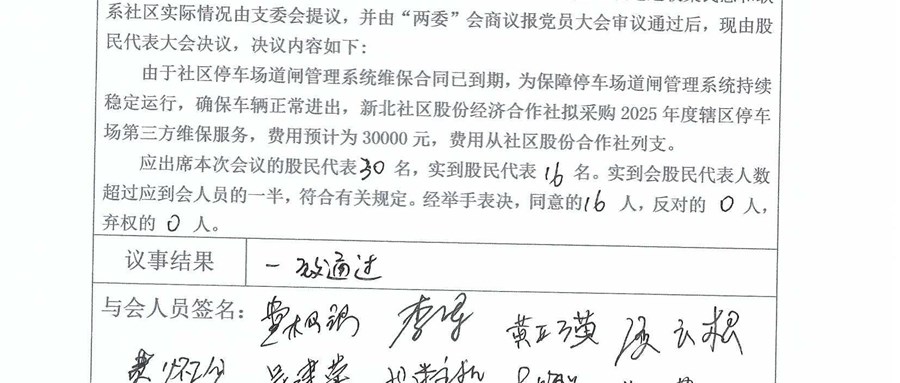 系社区实际情况由支委会提议，并由“两委”会商议报党员大会审议通过后，现由股
民代表大会决议，决议内容如下：
由于社区停车场道闸管理系统维保合同已到期，为保障停车场道闸管理系统持续
稳定运行，确保车辆正常进出，新北社区股份经济合作社拟采购 2025 年度辖区停车
场第三方维保服务，费用预计为 30000 元，费用从社区股份合作社列支。
应出席本次会议的股民代表 30 名，实到股民代表 16 名。实到会股民代表人数
超过应到会人员的一半，符合有关规定。经举手表决，同意的 16 人，反对的 0 人，
弃权的 0 人。
议事结果 一致通过
与会人员签名：